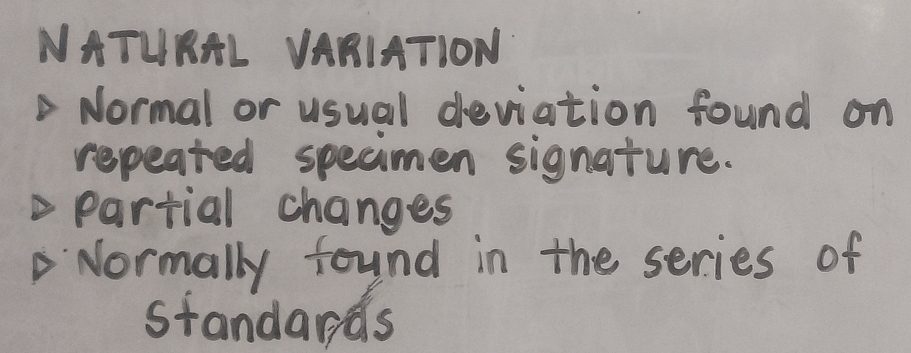 NATURAL VARIATION
▷ Normal or usual deviation found on
repeated specimen signature.
▷ Partial changes
▷ Normally found in the series of
Standards